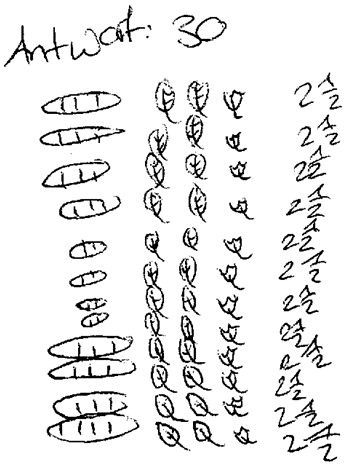 Antwort: 30
2 ½
2 ½
2 ½
2 ½
2 ½
2 ½
2 ½
2 ½
2 ½
2 ½
2 ½
2 ½